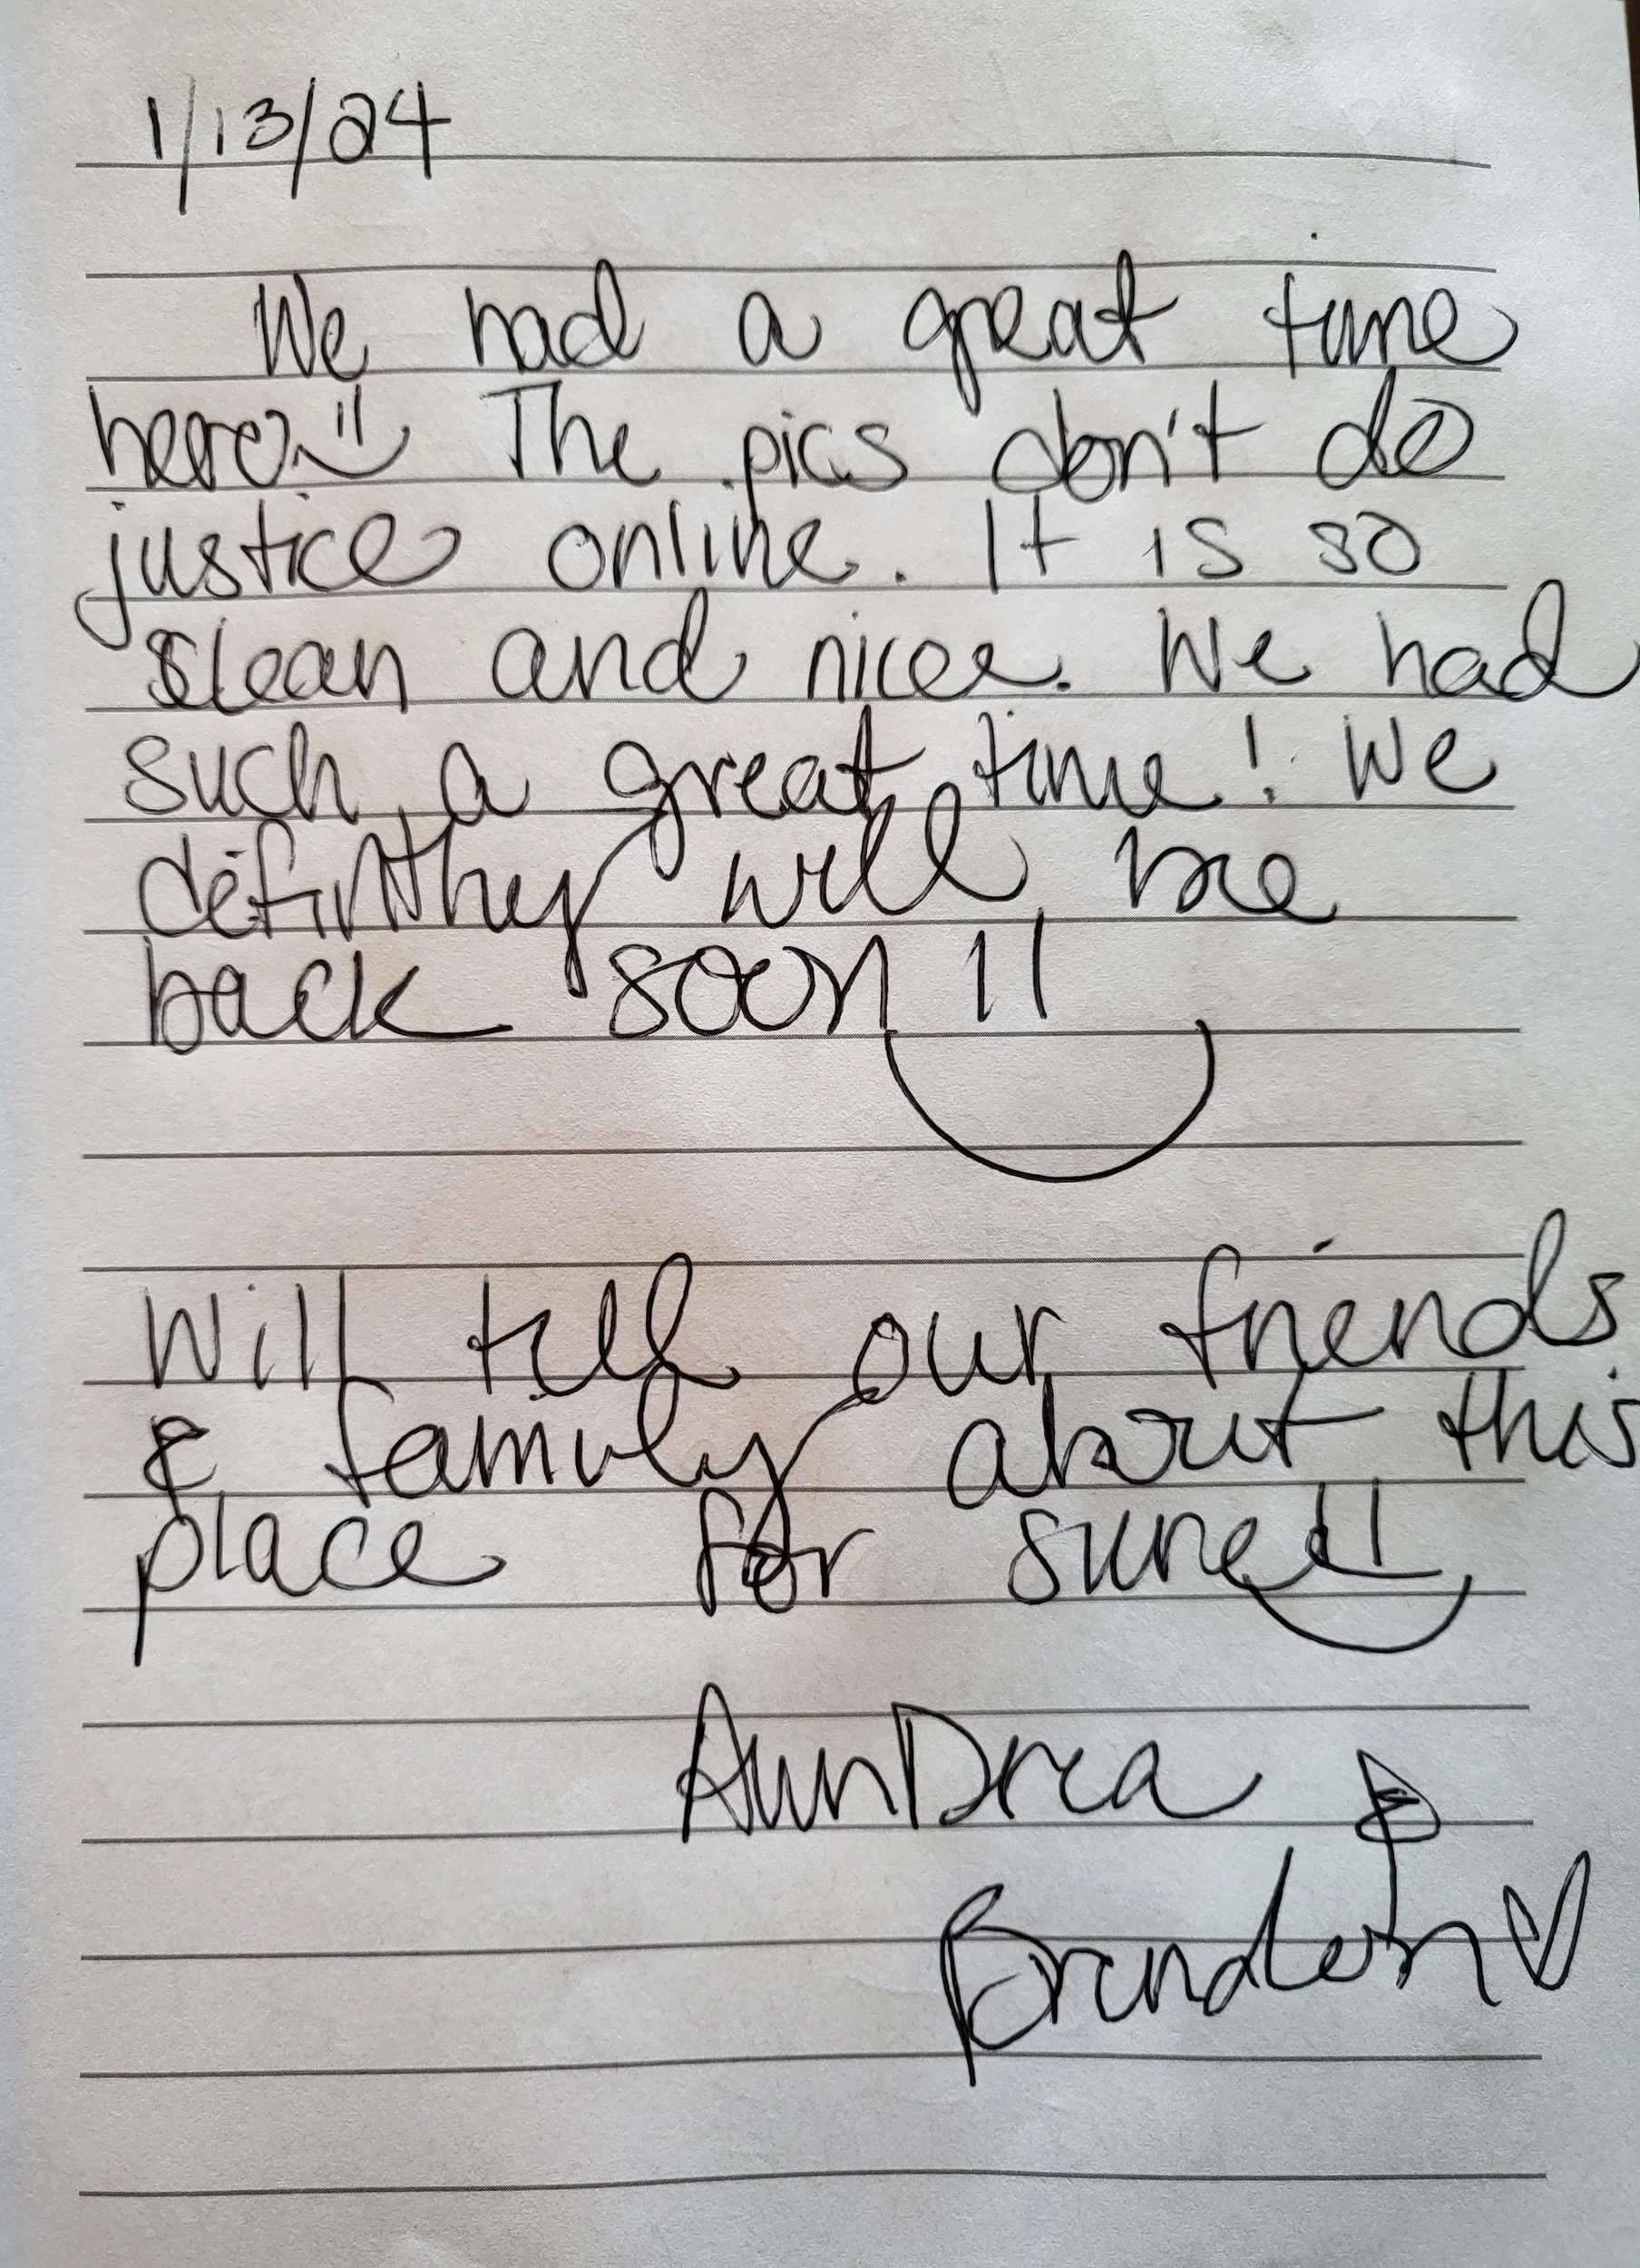 1/13/24
We had a great time
here. The pics don't do
justice online. It is so
clean and nice. We had
such a great time! We
definitley will be
back soon!!
Will tell our friends
& family about this
place for sure!!
AunDrea &
Brandon